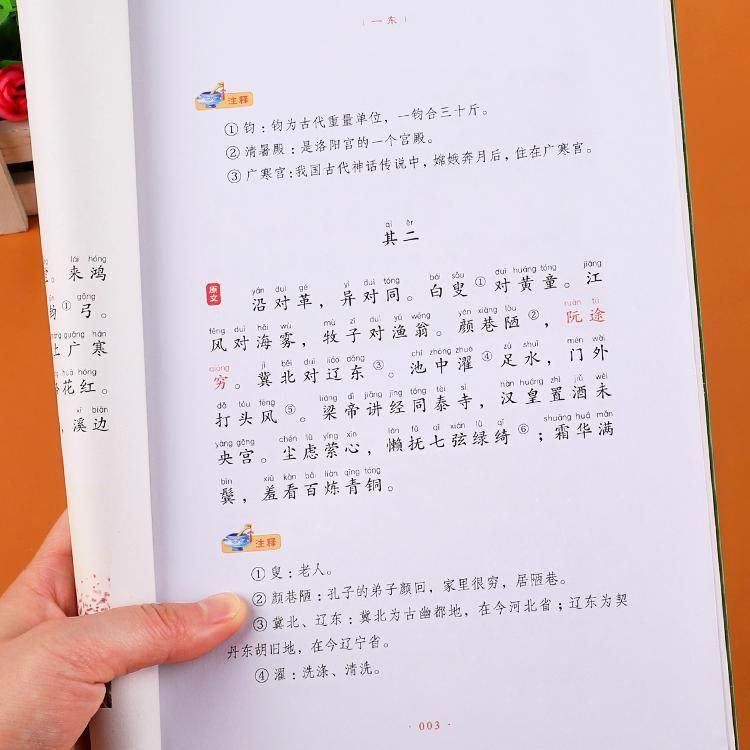 lái hóng
。来鸿
gōng
①弓。
guǎng hán
上广寒
huā hóng
花红。
xī biān
，溪边
一东
注释
①钧:钧为古代重量单位，一钧合三十斤。
②清暑殿:是洛阳宫的一个宫殿。
③广寒宫:我国古代神话传说中，嫦娥奔月后，住在广寒宫。
qí èr
其二
原文
yán duì gé yì duì tóng bái sǒu duì huáng tóng jiāng
沿对革，异对同。白叟①对黄童。江
fēng duì hǎi wù mù zǐ duì yú wēng yán xiàng lòu ruǎn tú
风对海雾，牧子对渔翁。颜巷陋②，阮途
qióng jì běi duì liáo dōng chí zhōng zhuó zú shuǐ mén wài
穷。冀北对辽东③。池中濯④足水，门外
dǎ tóu fēng liáng dì jiǎng jīng tóng tài sì hàn huáng zhì jiǔ wèi
打头风⑤。梁帝讲经同泰寺，汉皇置酒未
yāng gōng chén lǜ yíng xīn lǎn fǔ qī xián lǜ qǐ shuāng huá mǎn
央宫。尘虑萦心，懒抚七弦绿绮⑥；霜华满
bìn xiū kàn bǎi liàn qīng tóng
鬓，羞看百炼青铜。
注释
①叟:老人。
②颜巷陋:孔子的弟子颜回，家里很穷，居陋巷。
③冀北、辽东:冀北为古幽都地，在今河北省；辽东为契
丹东胡旧地，在今辽宁省。
④濯:洗涤、清洗。
· 003 ·